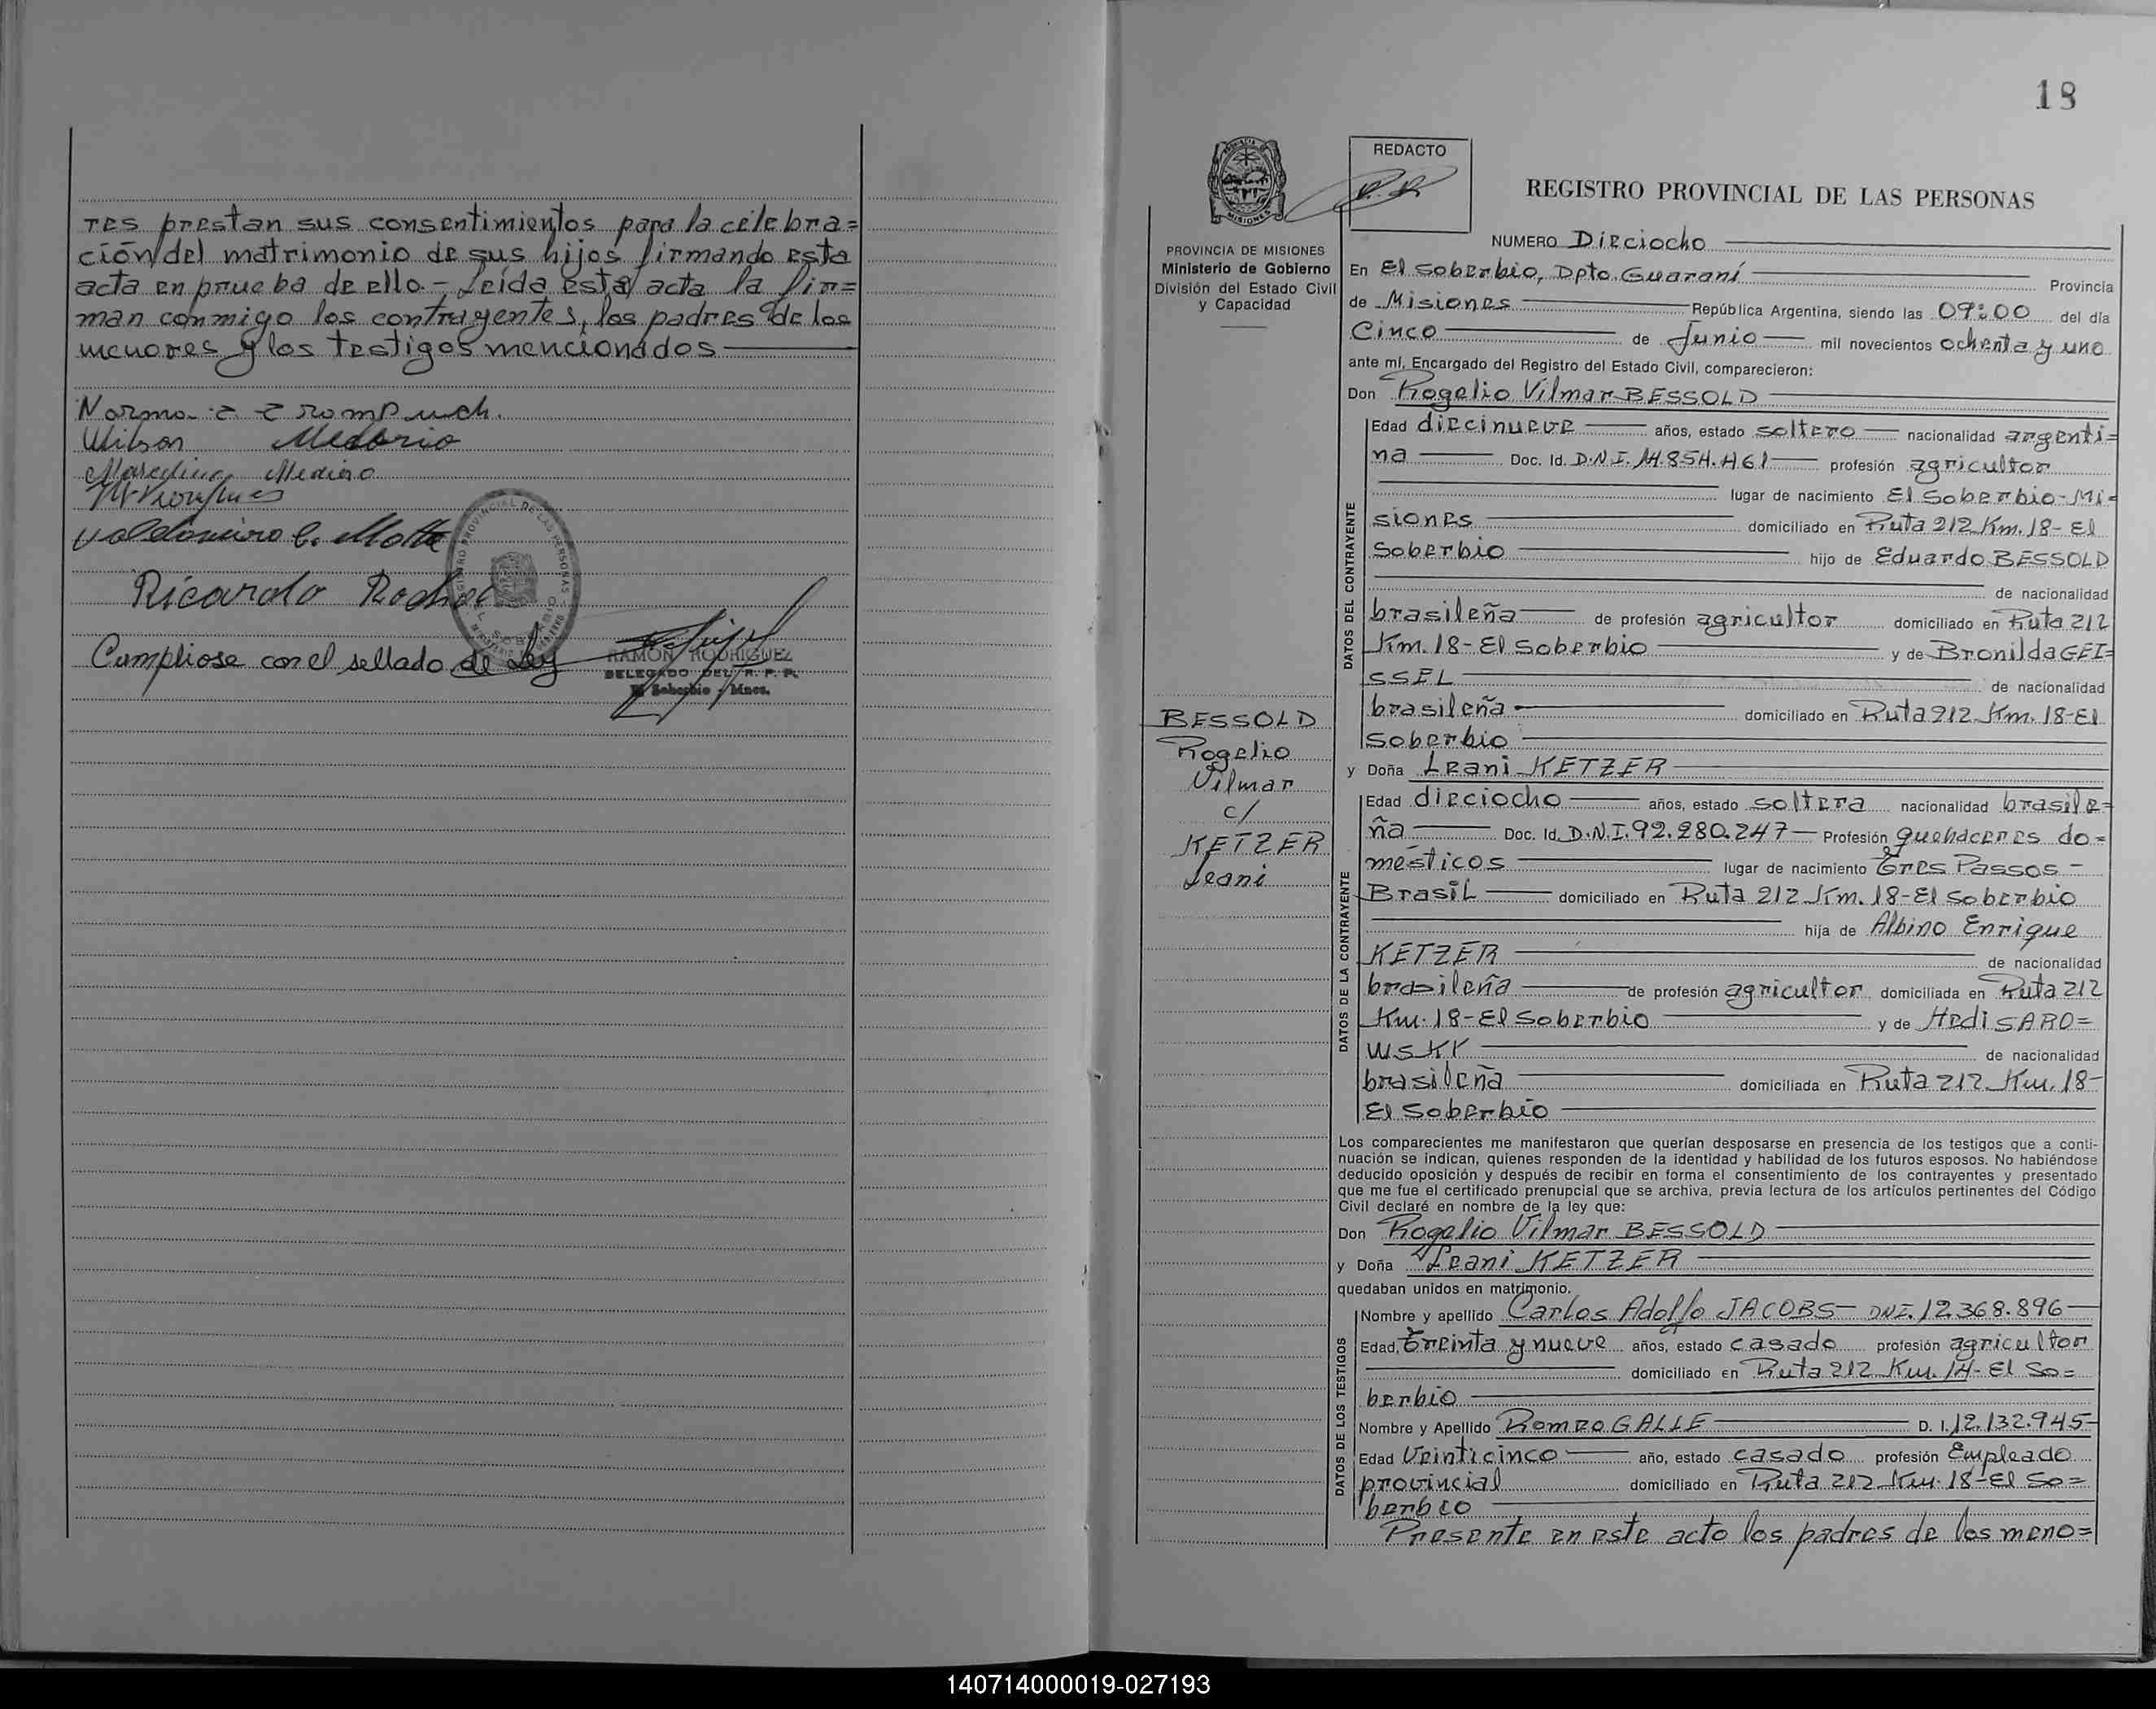 tes prestan sus consentimientos para la celebra=
ción del matrimonio de sus hijos firmando esta
acta en prueba de ello.- Leída esta acta la fir=
man conmigo los contrayentes, los padres de los
menores y los testigos mencionados
Wilson
Ricardo
Cumpliose con el sellado de Ley
RAMON RODRIGUEZ
DELEGADO DEL R. P. P.
El Soberbio - Mnes.
18
REDACTO
REGISTRO PROVINCIAL DE LAS PERSONAS
NUMERO Dieciocho
PROVINCIA DE MISIONES
Ministerio de Gobierno
División del Estado Civil
y Capacidad
En El Soberbio, Dpto. Guaraní Provincia
de Misiones República Argentina, siendo las 09:00 del día
Cinco de Junio mil novecientos ochenta y uno
ante mí, Encargado del Registro del Estado Civil, comparecieron:
Don Rogelio Vilmar BESSOLD
DATOS DEL CONTRAYENTE
Edad diecinueve años, estado soltero nacionalidad argenti=
na Doc. Id. D.N.I. 14.854.461 profesión agricultor
lugar de nacimiento El Soberbio-Mi=
siones domiciliado en Ruta 212 Km. 18- El
Soberbio hijo de Eduardo BESSOLD
de nacionalidad
brasileña de profesión agricultor domiciliado en Ruta 212
Km. 18- El Soberbio y de Bronilda GEI=
SSEL de nacionalidad
brasileña domiciliado en Ruta 212 Km. 18-El
Soberbio
BESSOLD
Rogelio
Vilmar
c/
KETZER
Leani
y Doña Leani KETZER
DATOS DE LA CONTRAYENTE
Edad dieciocho años, estado soltera nacionalidad brasile=
ña Doc. Id. D.N.I. 92.280.247 Profesión quehaceres do=
mésticos lugar de nacimiento Tres Passos -
Brasil domiciliado en Ruta 212 Km. 18-El Soberbio
hija de Albino Enrique
KETZER de nacionalidad
brasileña de profesión agricultor domiciliada en Ruta 212
Km. 18-El Soberbio y de Hedi SARO=
WSKY de nacionalidad
brasileña domiciliada en Ruta 212 Km. 18-
El Soberbio
Los comparecientes me manifestaron que querían desposarse en presencia de los testigos que a conti-
nuación se indican, quienes responden de la identidad y habilidad de los futuros esposos. No habiéndose
deducido oposición y después de recibir en forma el consentimiento de los contrayentes y presentado
que me fue el certificado prenupcial que se archiva, previa lectura de los artículos pertinentes del Código
Civil declaré en nombre de la ley que:
Don Rogelio Vilmar BESSOLD
y Doña Leani KETZER
quedaban unidos en matrimonio.
DATOS DE LOS TESTIGOS
Nombre y apellido Carlos Adolfo JACOBS- DNI. 12.368.896
Edad, Treinta y nueve años, estado casado profesión agricultor
domiciliado en Ruta 212 Km. 14- El So=
berbio
Nombre y Apellido Romeo GALLE D. I. 12.132.945-
Edad Veinticinco año, estado casado profesión Empleado
provincial domiciliado en Ruta 212 Km. 18-El So=
berbio
Presente en este acto los padres de los meno=
140714000019-027193